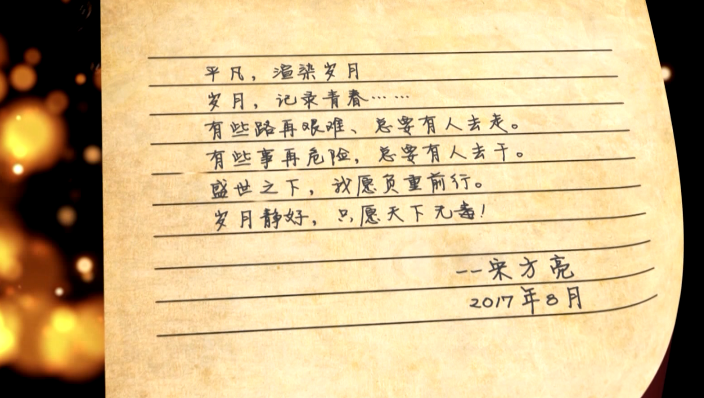 平凡，渲染岁月
岁月，记录青春……
有些路再艰难、总要有人去走。
有些事再危险，总要有人去干。
盛世之下，我愿负重前行。
岁月静好，只愿天下无毒！
--宋方亮
2017年8月